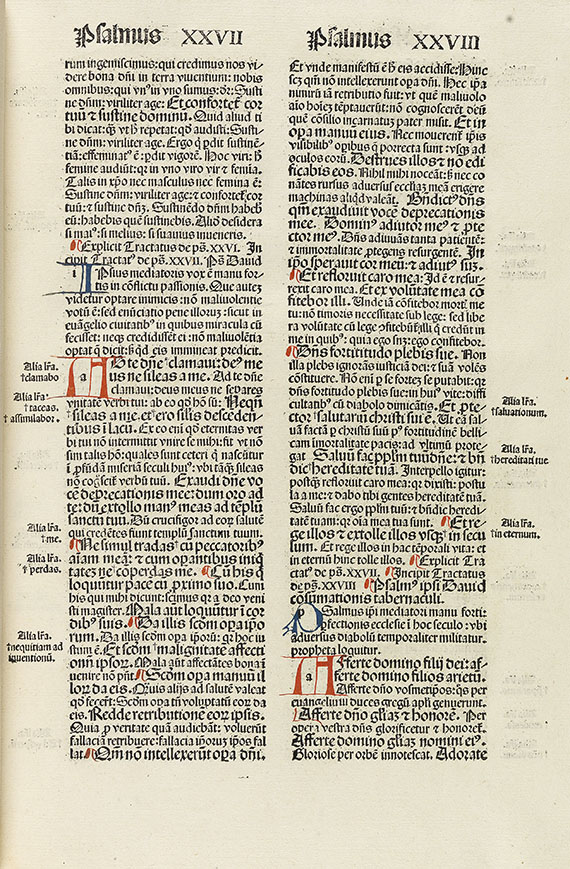 Psalmus XXVII
rum ingemiscimus: qui credimus nos vi-
dere bona dñi in terra viuentium: nobis
omnibus: qui vn' in vno sumus: dr: Susti
ne dñm: viriliter age: Et confortet' cor
tuũ & sustine dominũ. Quid aliud ti
bi dicat: qz vt h repetat: qd audisti: Susti-
ne dñm: viriliter age. Ergo q pdit sustinē-
tiā: effeminat' ē: pdit vigorē. Hoc viri: h
femine audiut: qr in vno viro vir & femia.
Talis in xpo nec masculus nec femina ē:
Sustine dñm: viriliter age: & confortet' cor
tuũ: & sustine dñz. Sustinēdo dñm habeb
eũ: habebis quē sustinebis. Alió desidera
si mai': si melius: si suauius inueneris.
Explicit Tractatus de ps. XXVI. In
cipit Tractat' de ps. XXVII. Ps' Dauid
IPsius mediatoris vox ē manu for
tis in conflictu passionis. Que autez
videtur optare inimicis: nō maliuolentie
votũ ē: sed enũciatio pene illorum: sicut in
euāgelio ciuitatib' in quibus miracula cũ
fecisset: neqz credidisset ei: nō maliuolētia
optat q dicit: s; qd eis immineat predicit.
AD te dñe clamaui: de' me
us ne sileas a me. Ad te dñe
clamaui: deus meus ne separes
vnitatē verbi tui: ab eo qd hō sũ: Neqñ
sileas a me. et ero silis descenden
tibus ī lacũ. Et eo eni qd eternitas ver
bi tui nō intermittit vnire se mihi: fit vt nō
sim talis hō: quales sunt ceteri q nascũtur
ī pfũdā miseriā seculi hui': vbi tāqz sileas
nō cogscit verbũ tuũ. Exaudi dñe vo
cē deprecationis mee: dum oro ad
te: dũ extollo man' meas ad tēplũ
sanctũ tuũ. Dũ crucifigor ad eor salutē
qui credētes siunt templũ sanctum tuum.
Ne simul tradas cũ peccatorib'
aīam meā: & cum opantibus iniq
tatez ne coperdas me. Cũ his q
loquũtur pacē cũ primo suo. Cum
his qui mihi dicunt: scimus qr a deo veni
sti magister. Mala aut loquũtur ī cor
dib' suis. Da illis scdm opa ipo
rum. Da illis scdm opa iporũ: qr hoc iu
stum ē. Et scdm malignitatē affecti
onũ ipsor. Mala aut affectātes bona ī
uenire nō pñt. Scdm opa manuũ il
lor da eis. Quis alijs ad salutē valeat
qd fecert: Scdm tñ voluptatũ eor da
eis. Redde retributionē eor ipsis.
Quia p veritate quā audiebāt: voluerũt
fallaciā retribuere: fallacia iporũs ipos fal
lat. Qm nō intellexerũt opa dñi.
Alia lra.
clamabo
Alia lra.
taceas.
assimilabor.
Alia lra.
me.
Alia lra.
perdas.
Alia lra.
nequitiam ad
inuentionũ.
Psalmus XXVIII
Et vnde manifestũ ē h eis accidisse: Hinc
scz qm nō intellexerunt opa dñi. Hec ipa
nimirũ iā retributio fuit: vt quē maliuolo
aīo hoīez tēptauerũt: nō cognoscerēt deũ:
quē cōsilio incarnatuz pater misit. Et in
opa manuũ eius. Nec mouerent ipis
visibilib' opibus q porrecta sunt vsqz ad
oculos eorũ. Destrues illos & nō edi
ficabis eos. Nihil mihi noceāt: s; nec co
nātes rursus aduersus ecclesiaz meā erigere
machinas aliqd valeāt. Bndict' dñs
qm exaudiuit vocē deprecationis
mee. Domin' adiutor me' & pte
ctor me'. Dñs adiuuās tanta patientē:
& immortalitate ptegens resurgentē. In
ipo sperauit cor meũ: & adiut' suz.
Et refloruit caro mea: Id ē: resur-
rexit caro mea. Et ex volũtate mea cō
fitebor illi. Unde iā cōsitebor mort' me
tu: nō timoris necessitate sub lege: sed libe
ra volũtate cũ lege cōfitebũt illi q credũt in
me in quib': quia ego suz: ego confitebor.
Dñs fortitudo plebis sue. Non
illa plebs ignorās iusticiā dei: & suā volēs
cōstituere. Nō eni p se fortez se putabit: qr
dñs fortitudo plebis sue: in hui' vite: diffi
cultatib' cũ diabolo dimicātis. Et pte-
ctor salutariũ christi sui ē. Ut eā sal-
uā factā p christũ suũ p' fortitudinē belli-
cam immortalitate pacis: ad vltimũ prote-
gat. Saluũ fac pplm tuũ dñe: & bñ
dic hereditati tuē. Interpello igitur:
postqz refloruit caro mea: qr dixisti: postu
la a me: & dabo tibi gentes hereditatē tuā.
Saluũ fac ergo pplm tuũ: & bndic heredi-
tati tuam: qr oīa mea tua sunt. Et re-
ge illos & extolle illos vsqz in secu
lum. Et rege illos in hac tēporali vita: et
in eternũ hinc tolle illos. Explicit Tra
ctat' de ps. XXVII. Incipit Tractatus
de ps. XXVIII Psalm' ipsi Dauid
cōsumationis tabernaculi.
PSalmus ipi mediatori manu forti:
pfectionis ecclesie ī hoc seculo: vbi
aduersus diabolũ temporaliter militatur.
propheta loquitur.
AFferte domino filij dei: af-
ferte domino filios arietũ.
Afferte dño vosmetipos: qs per
euangeliũ duces gregũ apli genuerunt.
Afferte dño gliaz & honorē. Per
opera vestra dñs glorificetur & honoret'.
Afferte domino gliaz nomini ei'.
Gloriose per orbē innotescat. Adorate
Alia lra.
saluationum.
Alia lra.
hereditati tue
Alia lra.
in eternum.